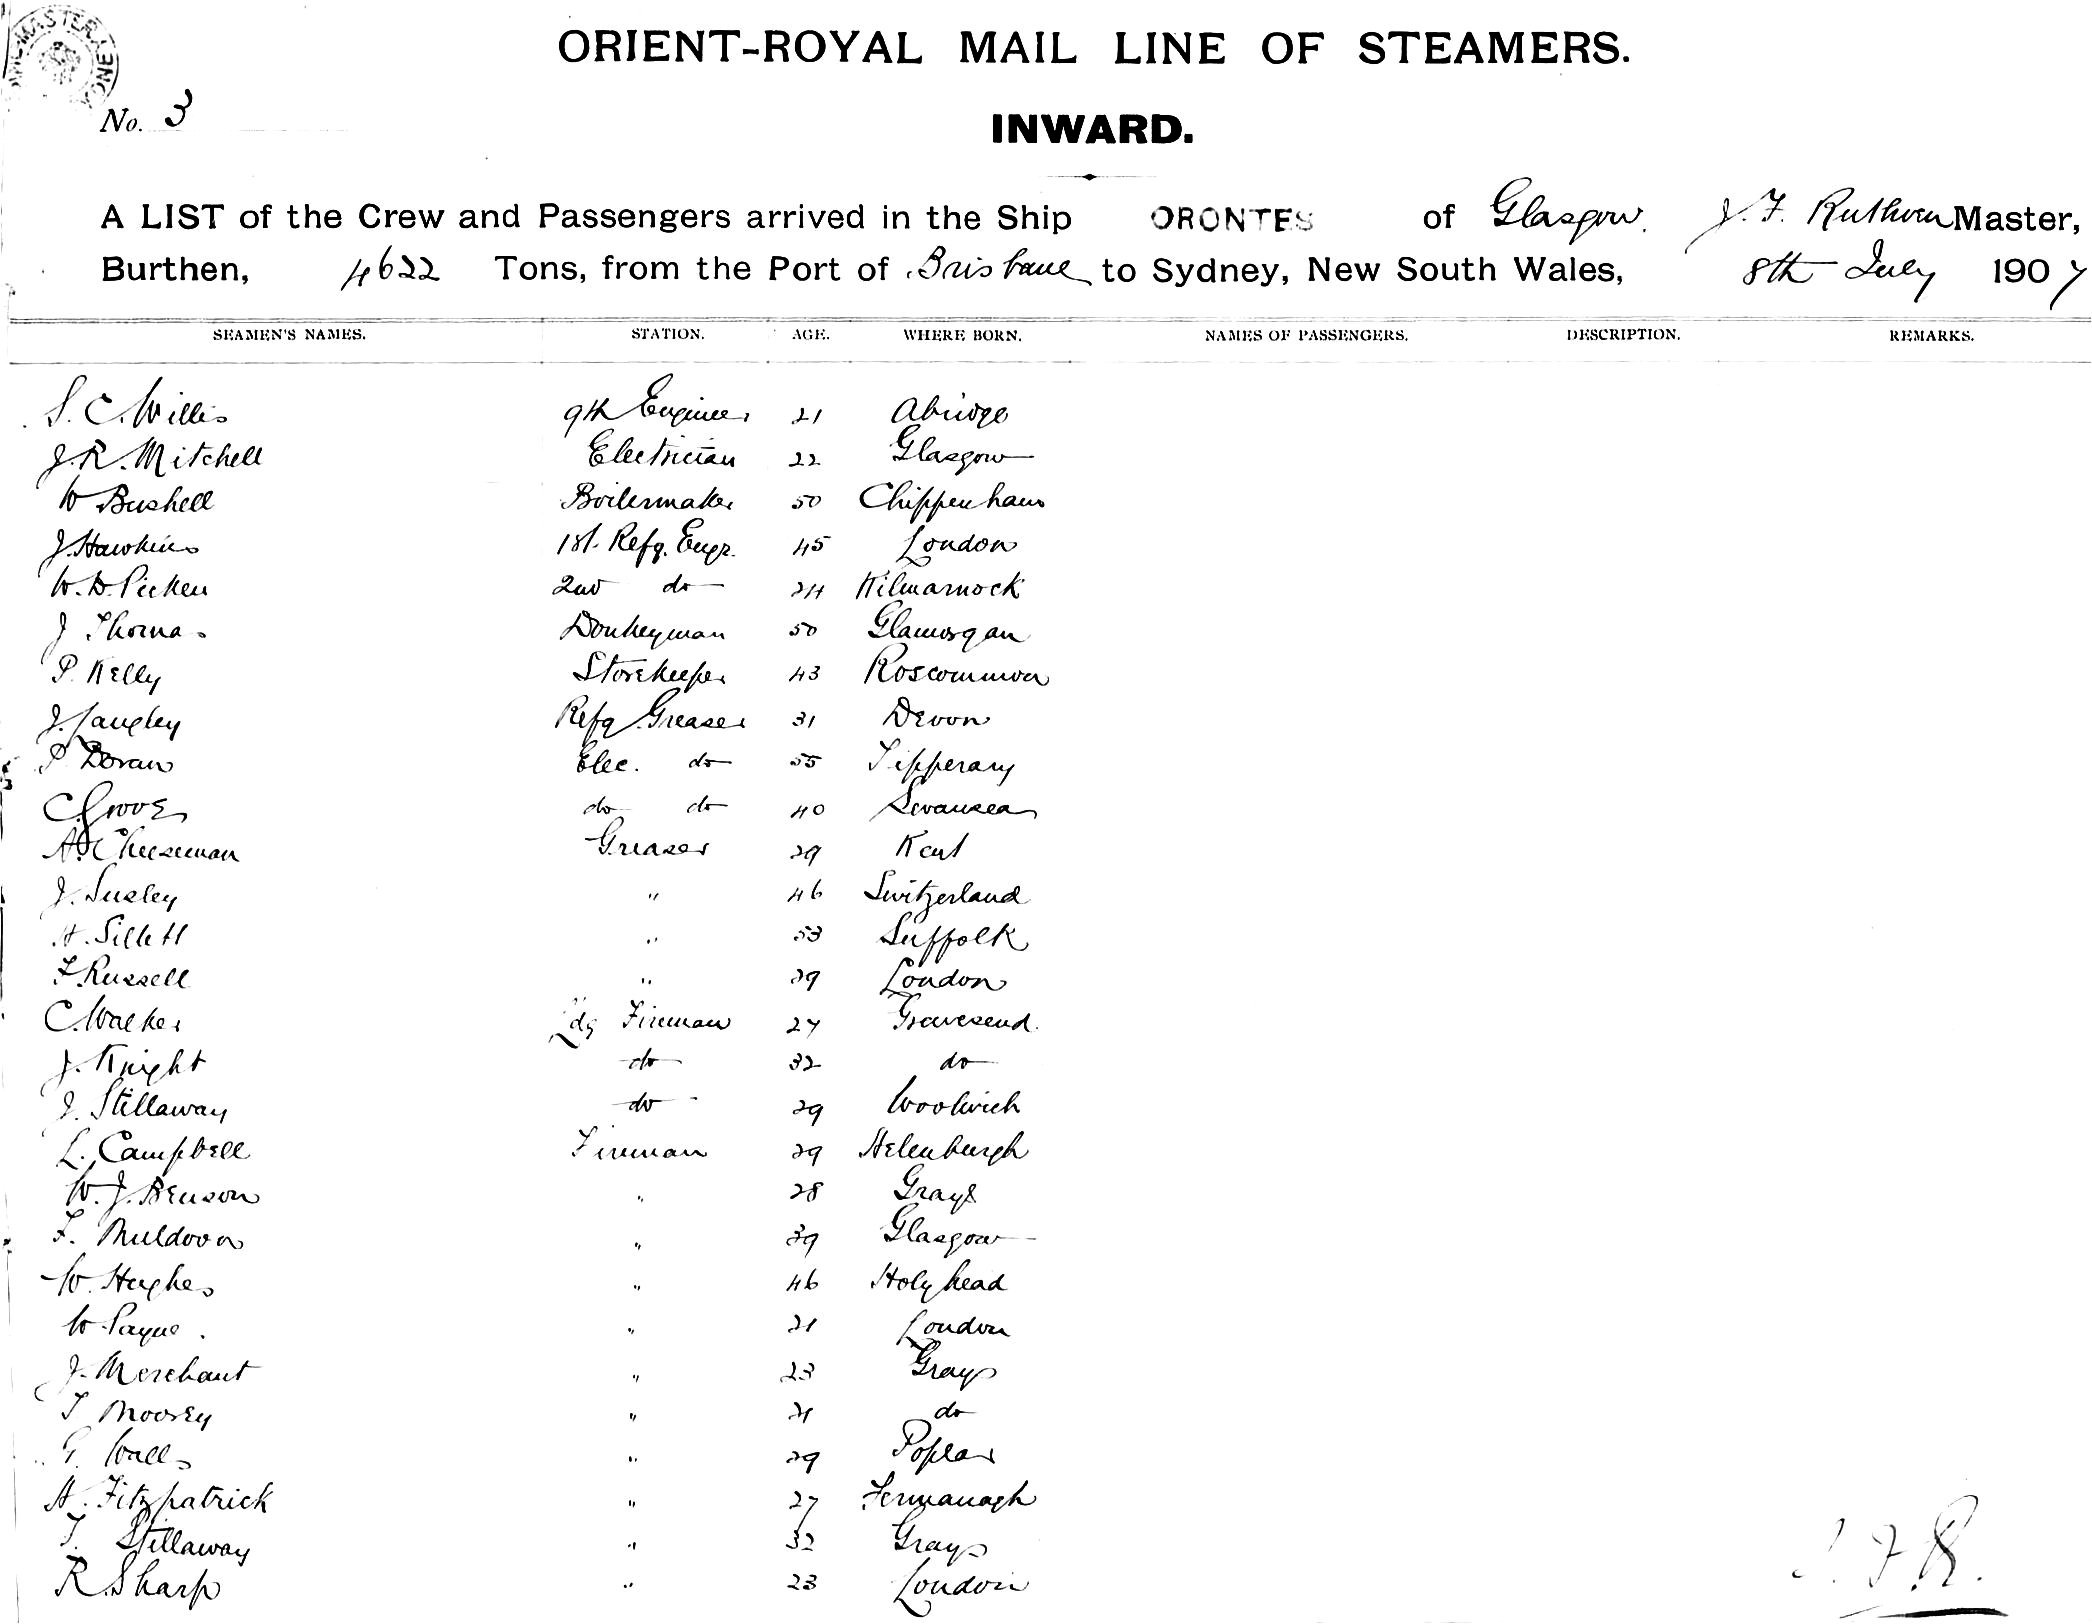 ORIENT-ROYAL MAIL LINE OF STEAMERS.
No. 3
INWARD.
A LIST of the Crew and Passengers arrived in the Ship ORONTES of Glasgow. J. F. Ruthven Master,
Burthen, 4622 Tons, from the Port of Brisbane to Sydney, New South Wales, 8th July 1907
SEAMEN'S NAMES. STATION. AGE. WHERE BORN. NAMES OF PASSENGERS. DESCRIPTION. REMARKS.
S. C. Willis 9th Engineer 21 Abridge
J. R. Mitchell Electrician 22 Glasgow
W Bushell Boilermaker 50 Chippenham
J. Hawkins 1st. Refg. Engr. 45 London
W. D. Picken 2nd do 24 Kilmarnock
J Thomas Donkeyman 50 Glamorgan
P. Kelly Storekeeper 43 Roscommon
J. Langley Refg Greaser 31 Devon
P Doran Elec. do 55 Tipperary
C. Groves do do 40 Swansea
A. Cheeseman Greaser 29 Kent
J. Susley " 46 Switzerland
H. Sillett " 53 Suffolk
F. Russell " 29 London
C. Walker Ldg Fireman 27 Gravesend.
J. Knight do 32 do
J. Stillaway do 29 Woolwich
L. Campbell Fireman 29 Helenburgh
W. J. Benson " 28 Grays
F. Muldoon " 39 Glasgow
W. Hughes " 46 Holyhead
W. Payne " 21 London
J. Merchant " 23 Grays
T Moorey " 21 do
G. Walls " 29 Poplar
H. Fitzpatrick " 27 Fermanagh
T. Stillaway " 32 Grays
R. Sharp " 23 London
J. F. R.